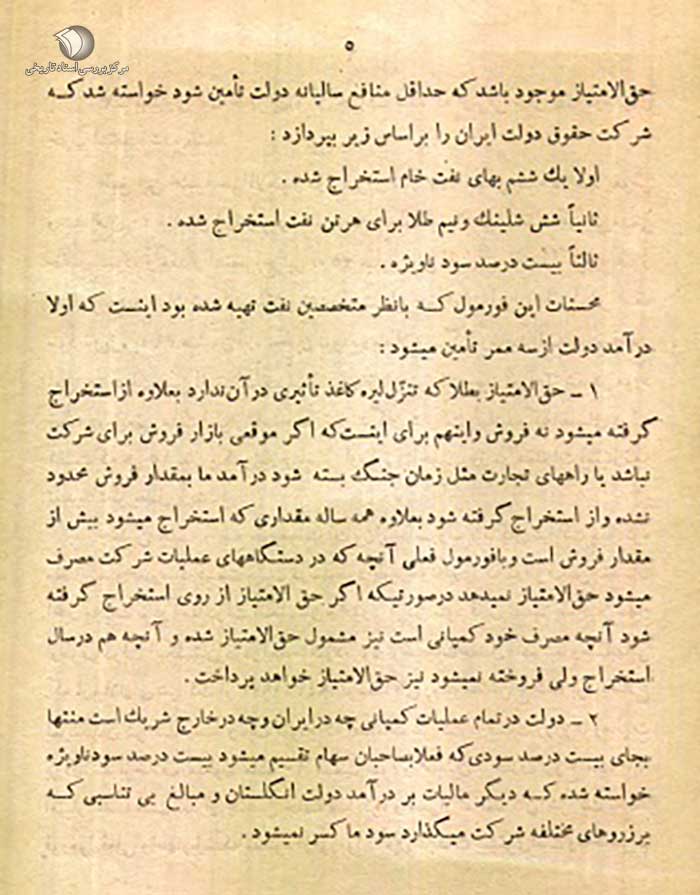 مرکز بررسی اسناد تاریخی
۵
حق‌الامتیاز موجود باشد که حداقل منافع سالیانه دولت تأمین شود خواسته شد که
شرکت حقوق دولت ایران را براساس زیر بپردازد :
اولا یك ششم بهای نفت خام استخراج شده .
ثانیاً شش شلینك ونیم طلا برای هرتن نفت استخراج شده .
ثالثاً بیست درصد سود ناویژه .
محسنات این فورمول که بانظر متخصصین نفت تهیه شده بود اینست که اولا
درآمد دولت ازسه ممر تأمین میشود :
۱ ـ حق‌الامتیاز بطلا که تنزّل لیره کاغذ تأثیری درآن ندارد بعلاوه ازاستخراج
گرفته میشود نه فروش واینهم برای اینست‌که اگر موقعی بازار فروش برای شرکت
نباشد یا راههای تجارت مثل زمان جنگ بسته شود درآمد ما بمقدار فروش محدود
نشده واز استخراج گرفته شود بعلاوه همه ساله مقداری که استخراج میشود بیش از
مقدار فروش است وبافورمول فعلی آنچه که در دستگاههای عملیات شرکت مصرف
میشود حق‌الامتیاز نمیدهد درصورتیکه اگر حق الامتیاز از روی استخراج گرفته
شود آنچه مصرف خود کمپانی است نیز مشمول حق‌الامتیاز شده و آنچه هم درسال
استخراج ولی فروخته نمیشود نیز حق‌الامتیاز خواهد پرداخت .
۲ ـ دولت درتمام عملیات کمپانی چه درایران وچه درخارج شریك است منتها
بجای بیست درصد سودی‌که فعلا بصاحبان سهام تقسیم میشود بیست درصد سودناویژه
خواسته شده که دیگر مالیات بر درآمد دولت انگلستان و مبالغ بی تناسبی که
برزروهای مختلفه شرکت میگذارد سود ما کسر نمیشود .